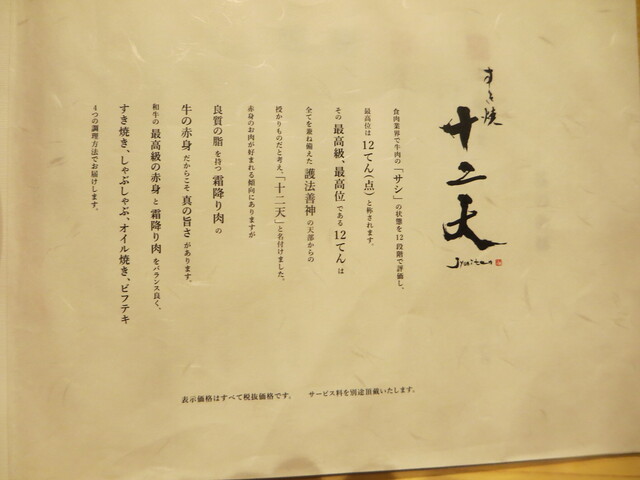 すき焼
十二天
Jyuniten
食肉業界で牛肉の「サシ」の状態を12段階で評価し、
最高位は12てん(点)と称されます。
その最高級、最高位である12てんは
全てを兼ね備えた護法善神の天部からの
授かりものだと考え、「十二天」と名付けました。
赤身のお肉が好まれる傾向にありますが
良質の脂を持つ霜降り肉の
牛の赤身だからこそ真の旨さがあります。
和牛の最高級の赤身と霜降り肉をバランス良く、
すき焼き、しゃぶしゃぶ、オイル焼き、ビフテキ
4つの調理方法でお届けします。
表示価格はすべて税抜価格です。　サービス料を別途頂戴いたします。